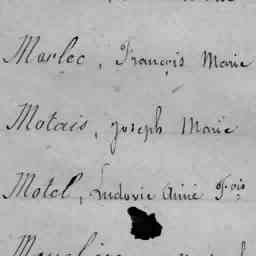 Marlec, François Marie
Motais, Joseph Marie
Motel, Ludovic Aimé F.ois